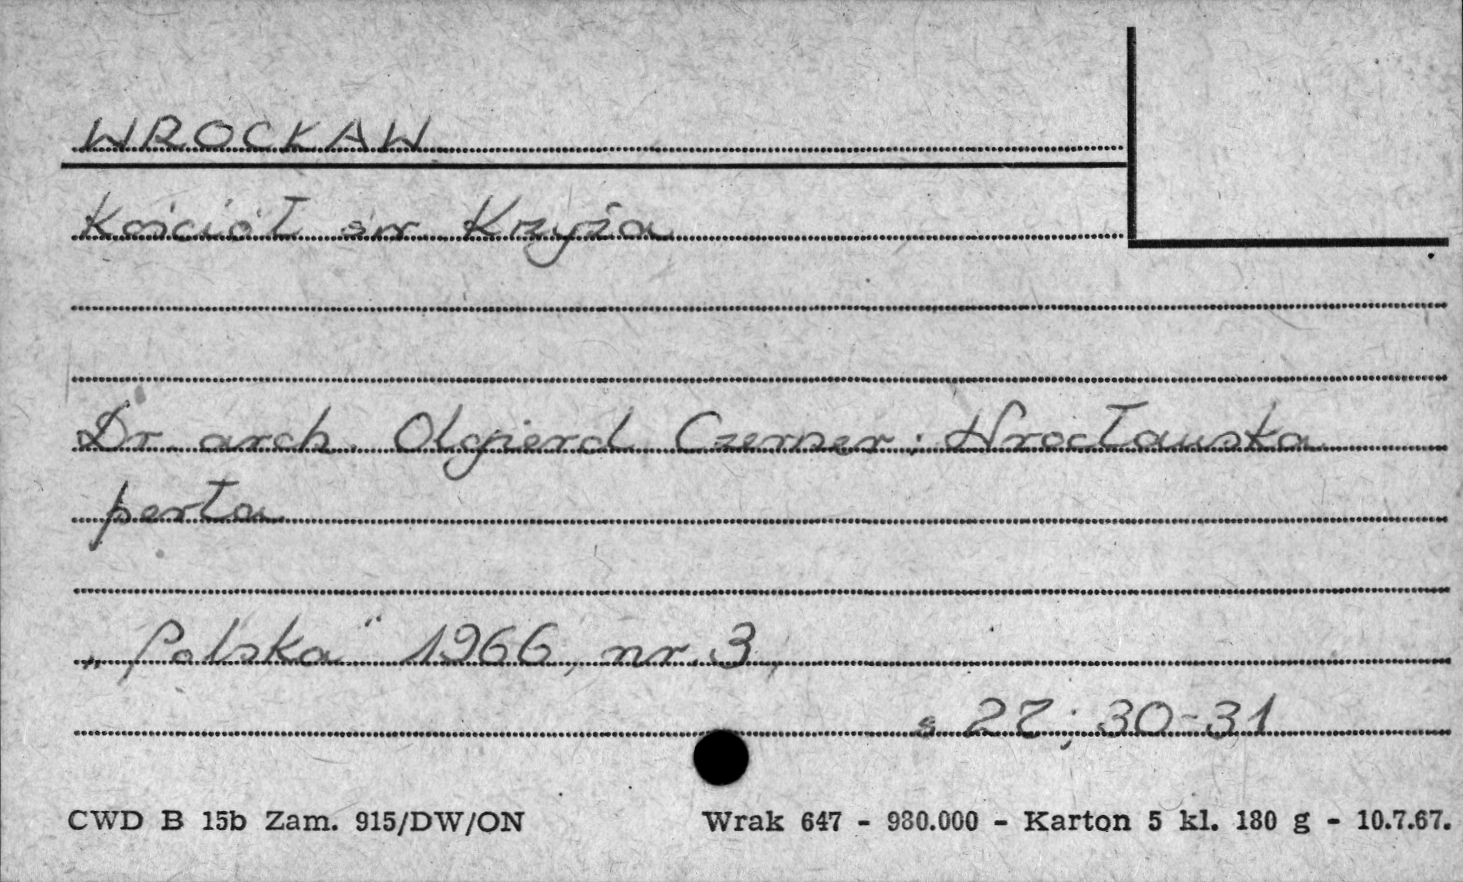 WROCŁAW
Kościół św Krzyża
Dr. arch. Olgierd Czerner: Wrocławska
perła
„Polska" 1966, nr. 3,
s 27; 30-31
CWD B 15b Zam. 915/DW/ON Wrak 647 - 980.000 - Karton 5 kl. 180 g - 10.7.67.